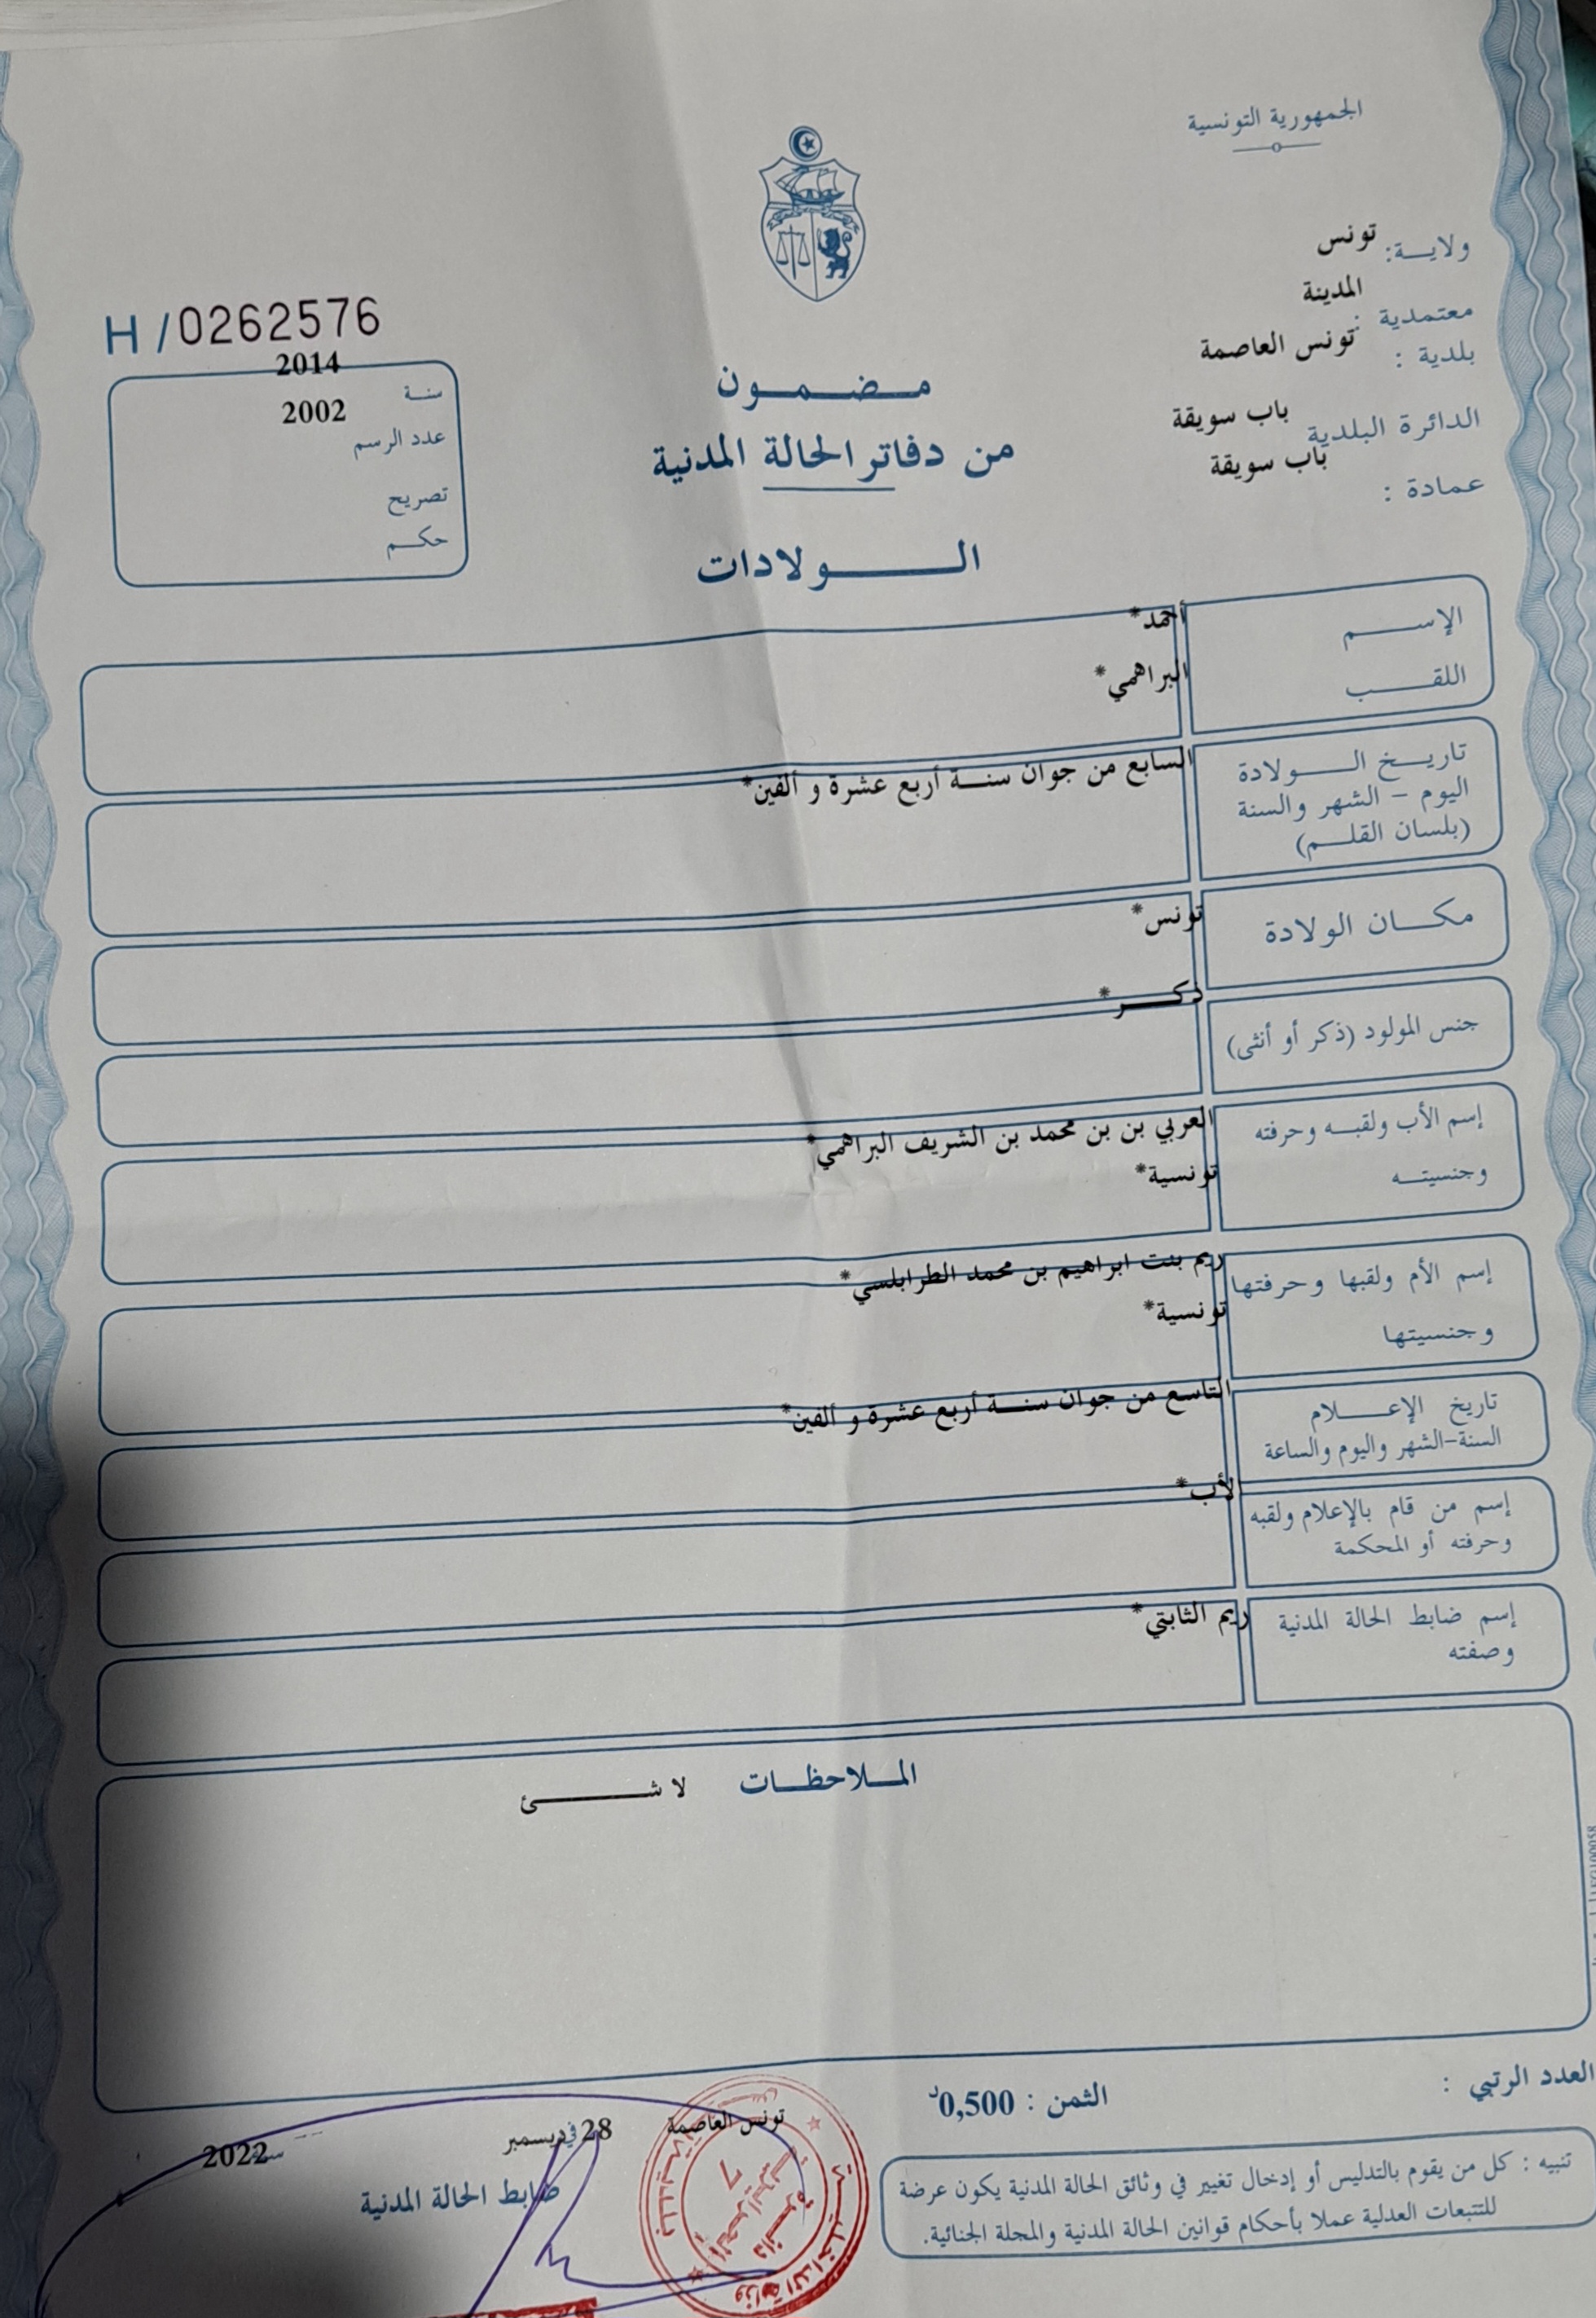 الجمهورية التونسية
ولايـــة: تونس
معتمدية : المدينة
بلدية : تونس العاصمة
الدائرة البلدية باب سويقة
عمادة : باب سويقة
H /0262576
سنـة 2014
عدد الرسم 2002
تصريح
حكـــم
مـــضـــمـــون
من دفاتر الحالة المدنية
الـــــولادات
الإســـــم أحمد*
اللقـــــب البراهمي*
تاريـــخ الـــــولادة السابع من جوان سنـــة أربع عشرة و ألفين*
اليوم – الشهر والسنة
(بلسان القلـــم)
مكـــان الولادة تونس*
جنس المولود (ذكر أو أنثى) ذكـــر*
إسم الأب ولقبـــه وحرفته العربي بن بن محمد بن الشريف البراهمي*
وجنسيتـــه تونسية*
إسم الأم ولقبها وحرفتها ريم بنت ابراهيم بن محمد الطرابلسي*
وجنسيتها تونسية*
تاريخ الإعـــــلام التاسع من جوان سنـــة أربع عشرة و ألفين*
السنة-الشهر واليوم والساعة
إسم من قام بالإعلام ولقبه الأب*
وحرفته أو المحكمة
إسم ضابط الحالة المدنية ريم الثابتي*
وصفته
المـــلاحظـــات لا شـــــئ
العدد الرتبي :
الثمن : 0,500د
تونس العاصمة 28 في ديسمبر سنة 2022
ضابط الحالة المدنية
تنبيه : كل من يقوم بالتدليس أو إدخال تغيير في وثائق الحالة المدنية يكون عرضة
للتتبعات العدلية عملا بأحكام قوانين الحالة المدنية والمجلة الجنائية.
وزارة الداخلية
7